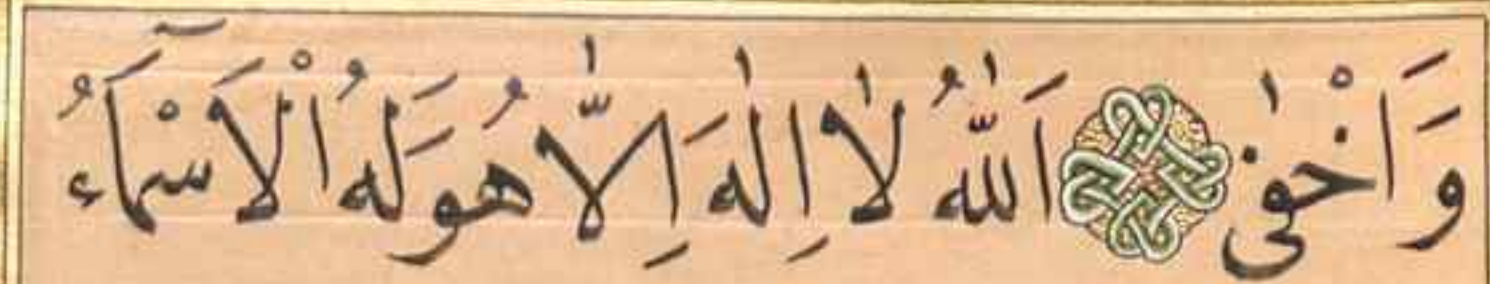 وَاَخْفٰى اَللّٰهُ لٰا اِلٰهَ اِلّٰا هُوَ لَهُ الْاَسْمَٓاءُ